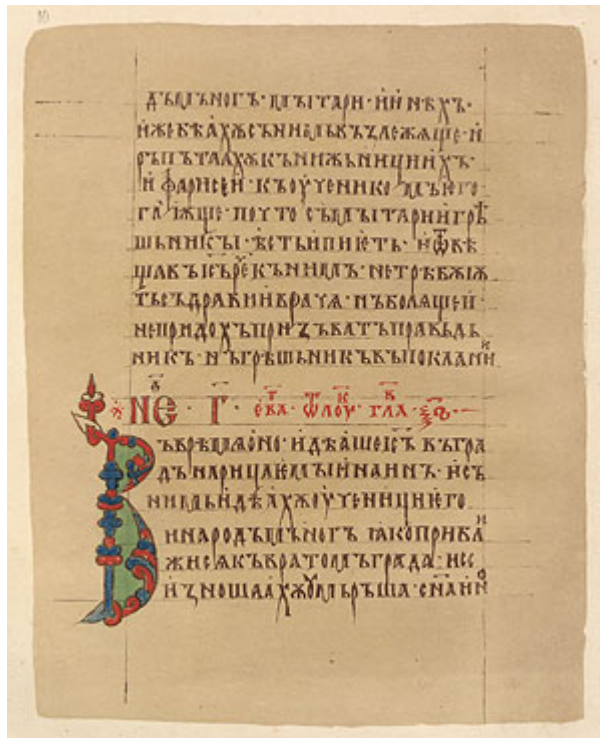 дъмъногъ· мытари· и инѣхъ·
ижебѣахѫсънимьвъꙁлежѧще· и
ръпътаахѫкънижьнициихъ·
и фарисеи· къоученикомъего
глѭще· почто съмытариигрѣ
шьникы· ѣстьипиѥть· иѿвѣ
щавъі҃съреⷱкънимъ· нетрѣбѹѭ
тъсъдравиврачѧ· нъболѧщеи·
непридохъприꙁъватъправьдь
никъ· нъгрѣшьникъвъпокаани
не҃· г҃· еваⷢ· ѿлоуⷦ· глаⷡ·
Въврѣмѧоно· идѣашеі҃съ въгра
дънарицаемыинаинъ· исъ
нимьидѣахѫоученициего
инародъмъногъ ꙗкоприбли
жисѧкъвратомъграда· исе
иꙁношаахѫоумьръша· с҃наино